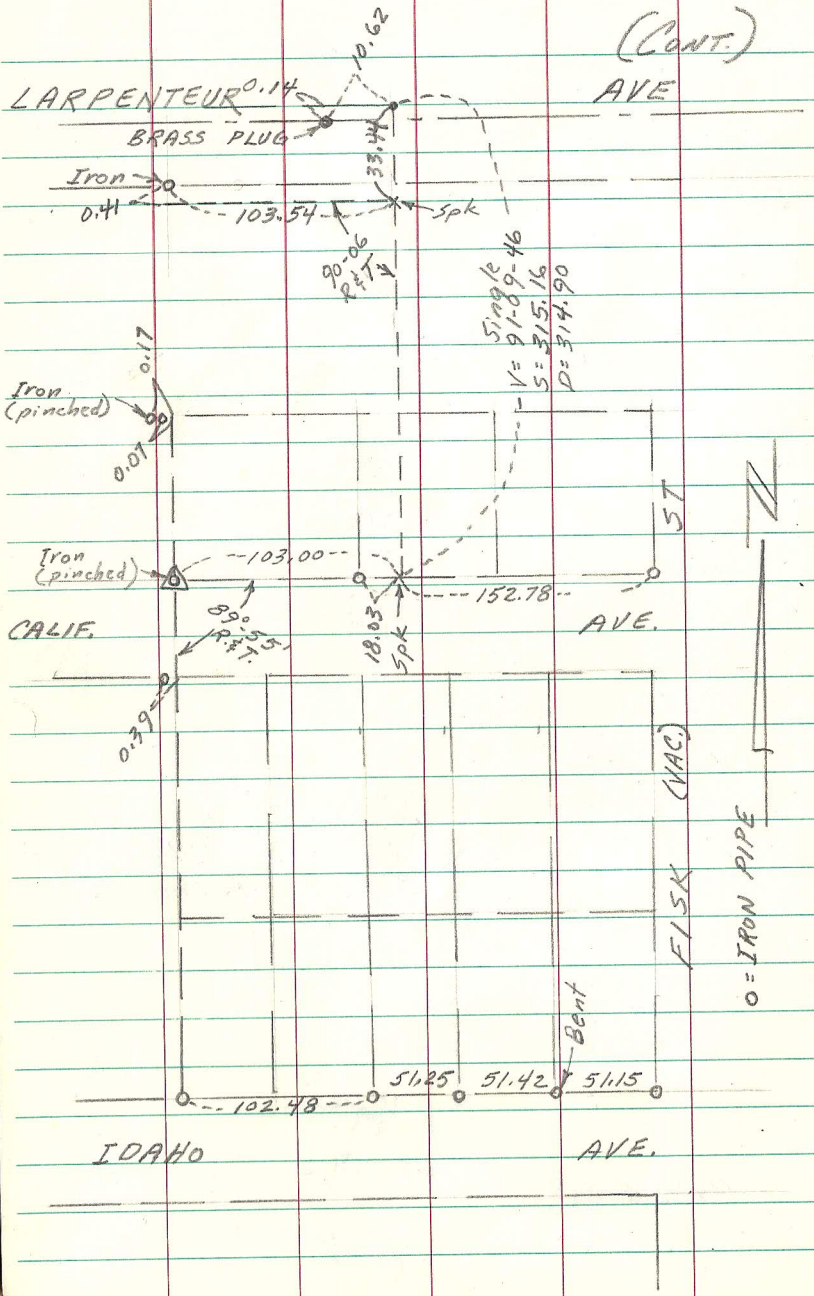 (CONT.)
10.62
LARPENTEUR 0.14 AVE
BRASS PLUG
33.44
Iron
0.41
103.54
Spk
90°-06
R&T
Single
V= 91-09-46
S= 315.16
D= 314.90
0.17
Iron
(pinched)
0.07
ST
N
Iron
(pinched)
103.00
152.78
CALIF. AVE.
89°-55'
R.&T.
18.03
Spk
0.39
(VAC.)
FISK
O = IRON PIPE
Bent
102.48 51.25 51.42 51.15
IDAHO AVE.